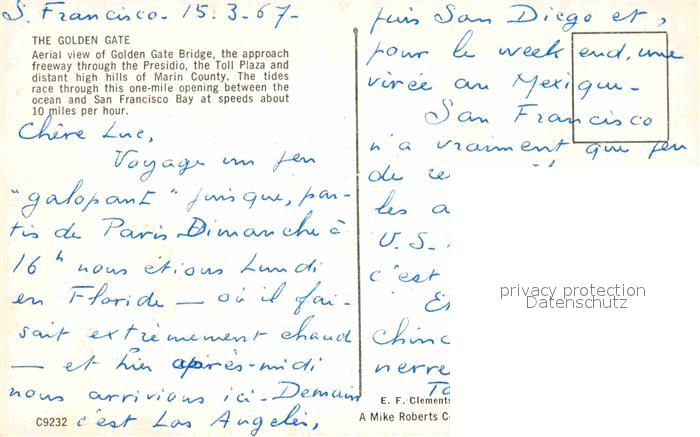 S. Francisco. 15.3.67.
THE GOLDEN GATE
Aerial view of Golden Gate Bridge, the approach
freeway through the Presidio, the Toll Plaza and
distant high hills of Marin County. The tides
race through this one-mile opening between the
ocean and San Francisco Bay at speeds about
10 miles per hour.
Chère Luc,
Voyage un peu
"galopant" puisque, par-
tis de Paris Dimanche à
16h nous étions Lundi
en Floride — où il fai-
sait extrèmement chaud
— et hier après-midi
nous arrivions ici. Demain
c'est Los Angelès,
C9232
puis San Diego et,
pour le week end, une
virée au Mexique.
San Francisco
n'a vraiment que peu
de re
les a
U.S.
c'est
Es
chinc
nerre
To
E. F. Clements
A Mike Roberts C
privacy protection
Datenschutz